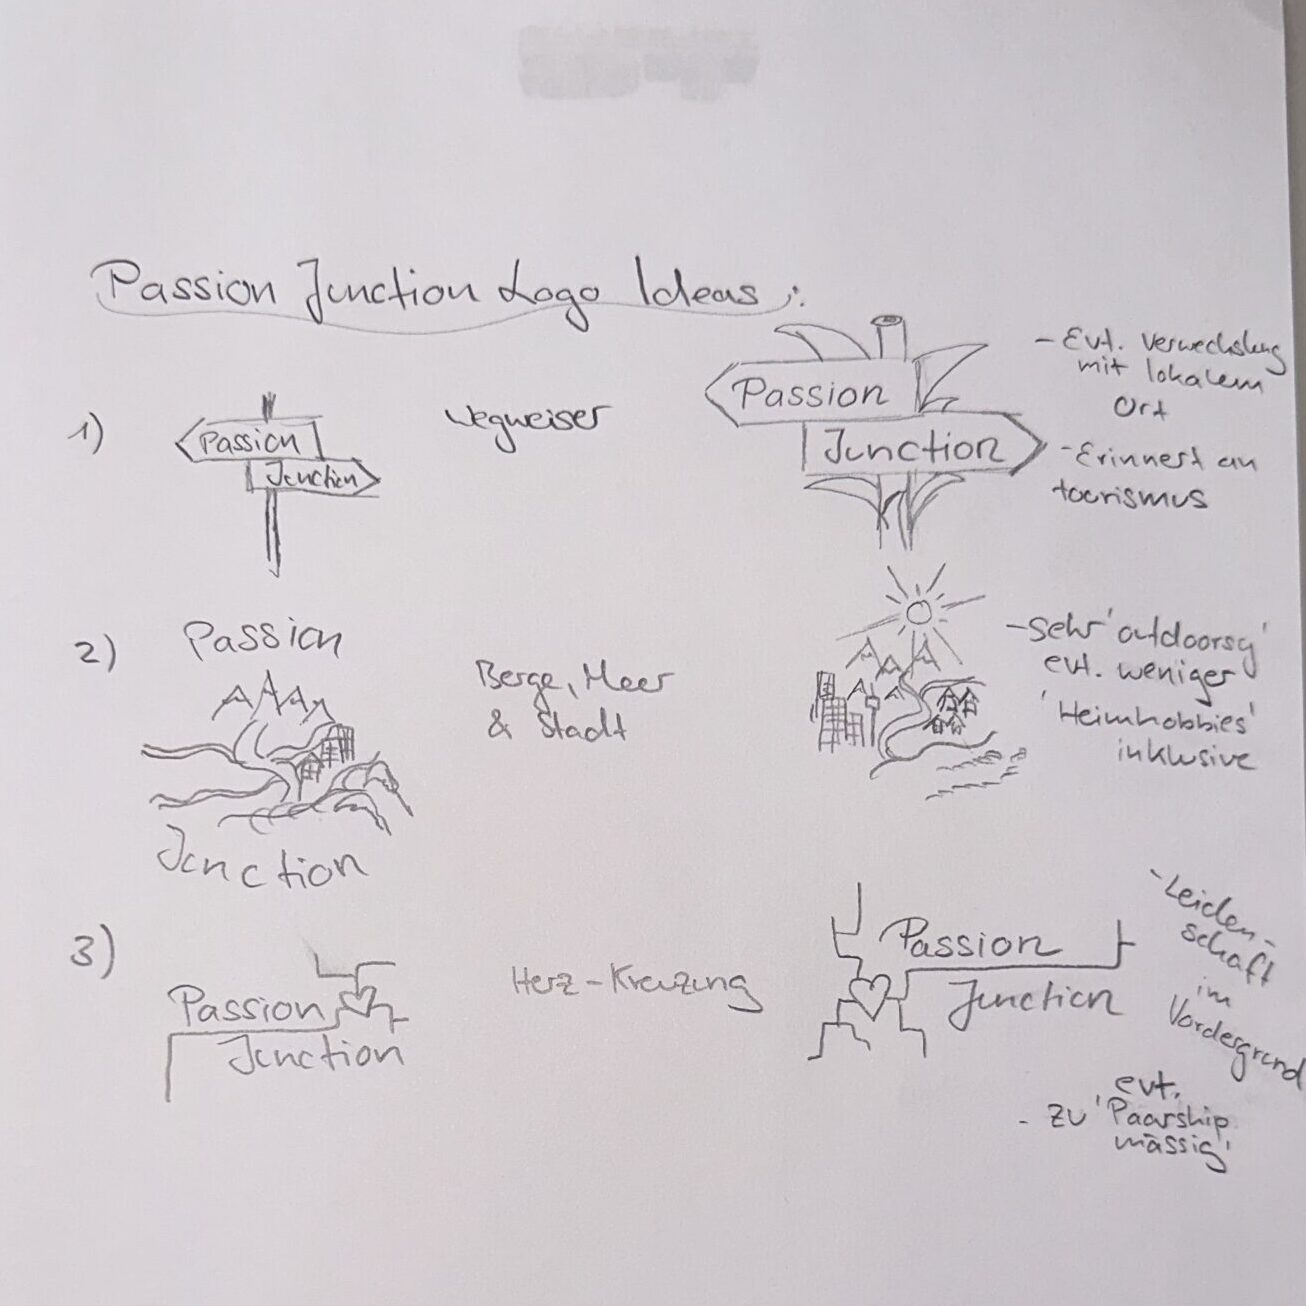 Passion Junction Logo Ideas:
1)
Passion
Junction
Wegweiser
Passion
Junction
- Evt. Verwechslung
mit lokalem
Ort
- Erinnert an
tourismus
2)
Passion
Junction
Berge, Meer
& Stadt
- Sehr 'outdoorsy'
evt. weniger
'Heimhobbies'
inklusive
3)
Passion
Junction
Herz-Kreuzung
Passion
Junction
- Leiden-
schaft
im
Vordergrund
evt.
- zu 'Paarship
mässig'